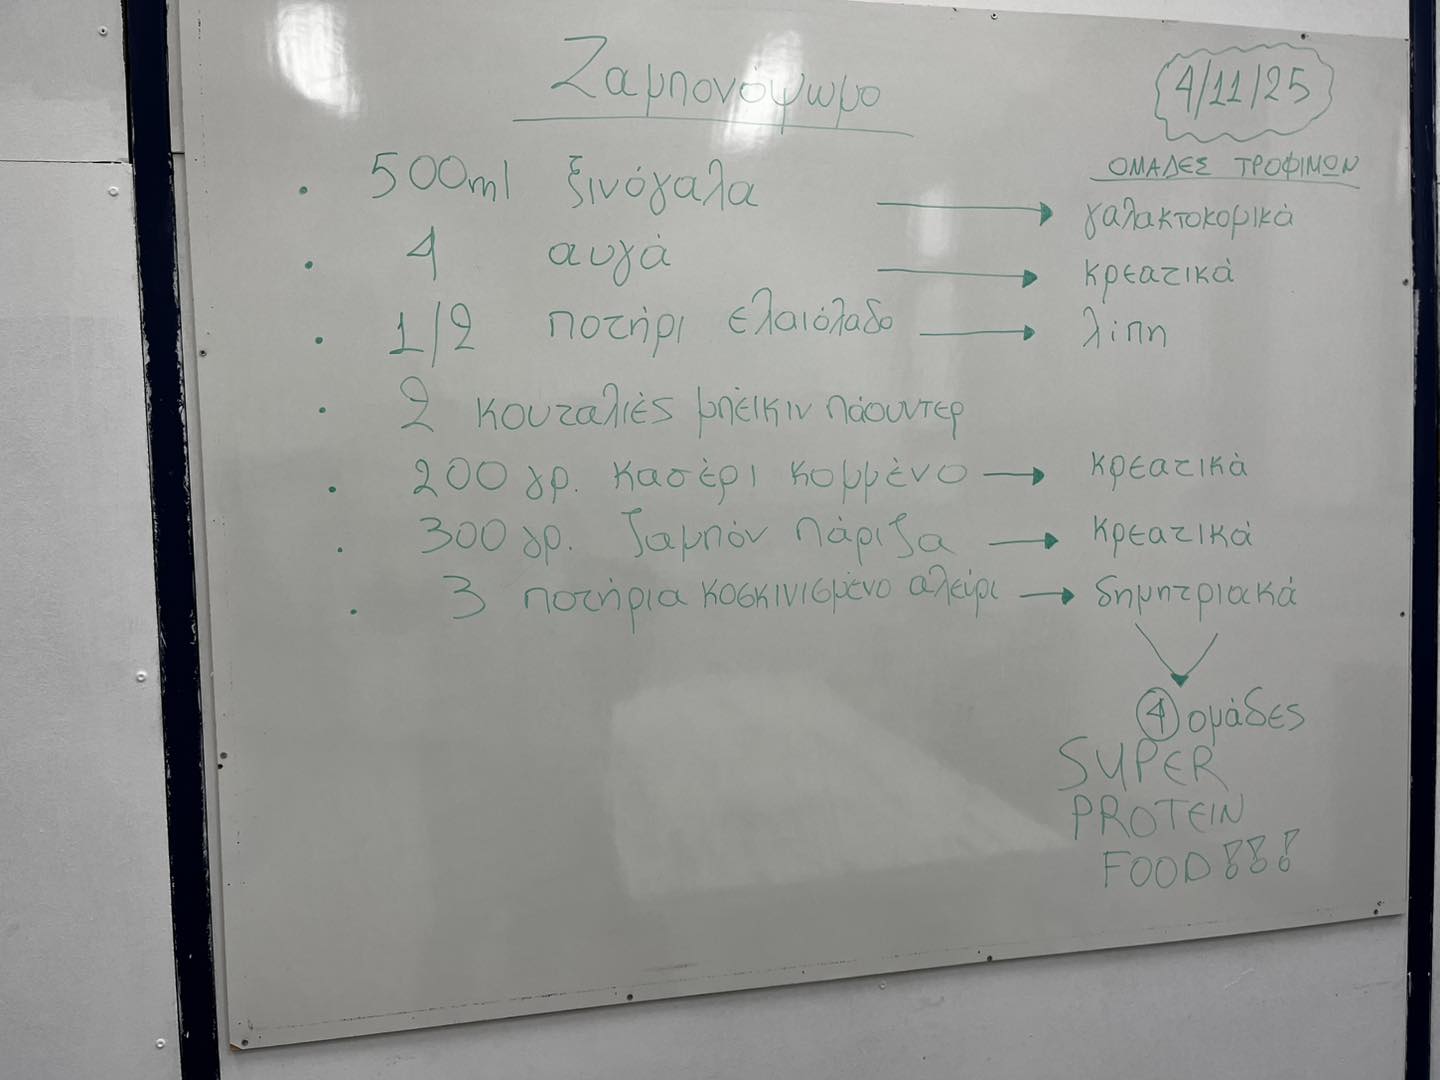 Ζαμπονόψωμο
4/11/25
ΟΜΑΔΕΣ ΤΡΟΦΙΜΩΝ
• 500ml ξινόγαλα → γαλακτοκομικά
• 4 αυγά → κρεατικά
• 1/2 ποτήρι ελαιόλαδο → λίπη
• 2 κουταλιές μπέικιν πάουντερ
• 200 γρ. κασέρι κομμένο → κρεατικά
• 300 γρ. ζαμπόν πάριζα → κρεατικά
• 3 ποτήρια κοσκινισμένο αλεύρι → δημητριακά
4 ομάδες
SUPER
PROTEIN
FOOD!!!